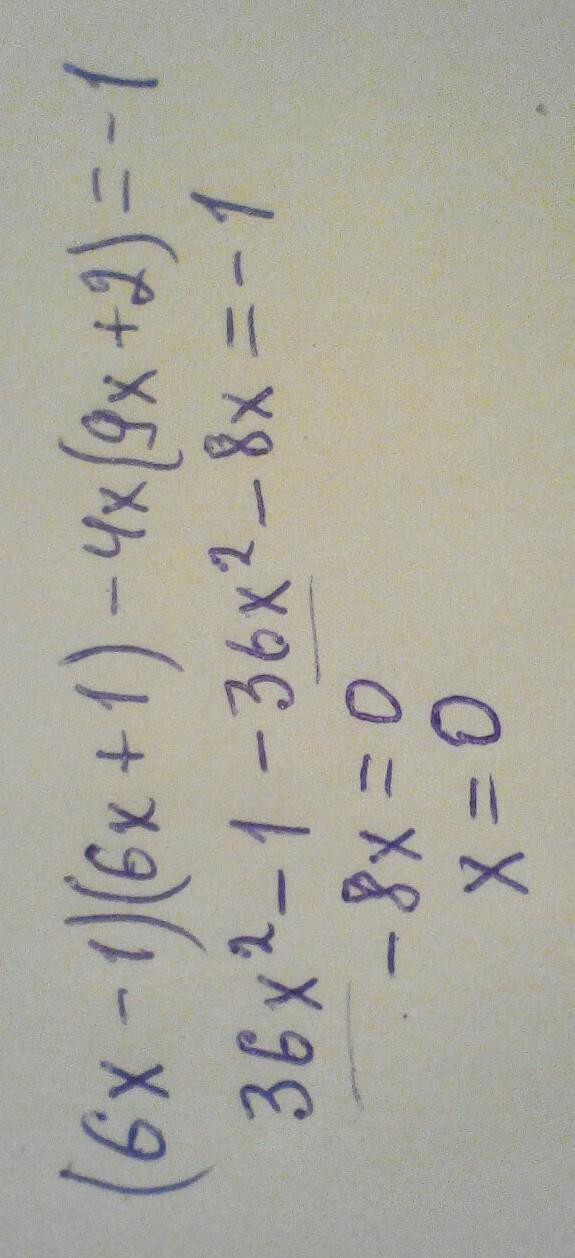 (6x - 1)(6x + 1) - 4x(9x + 2) = -1
36x² - 1 - 36x² - 8x = -1
-8x = 0
x = 0